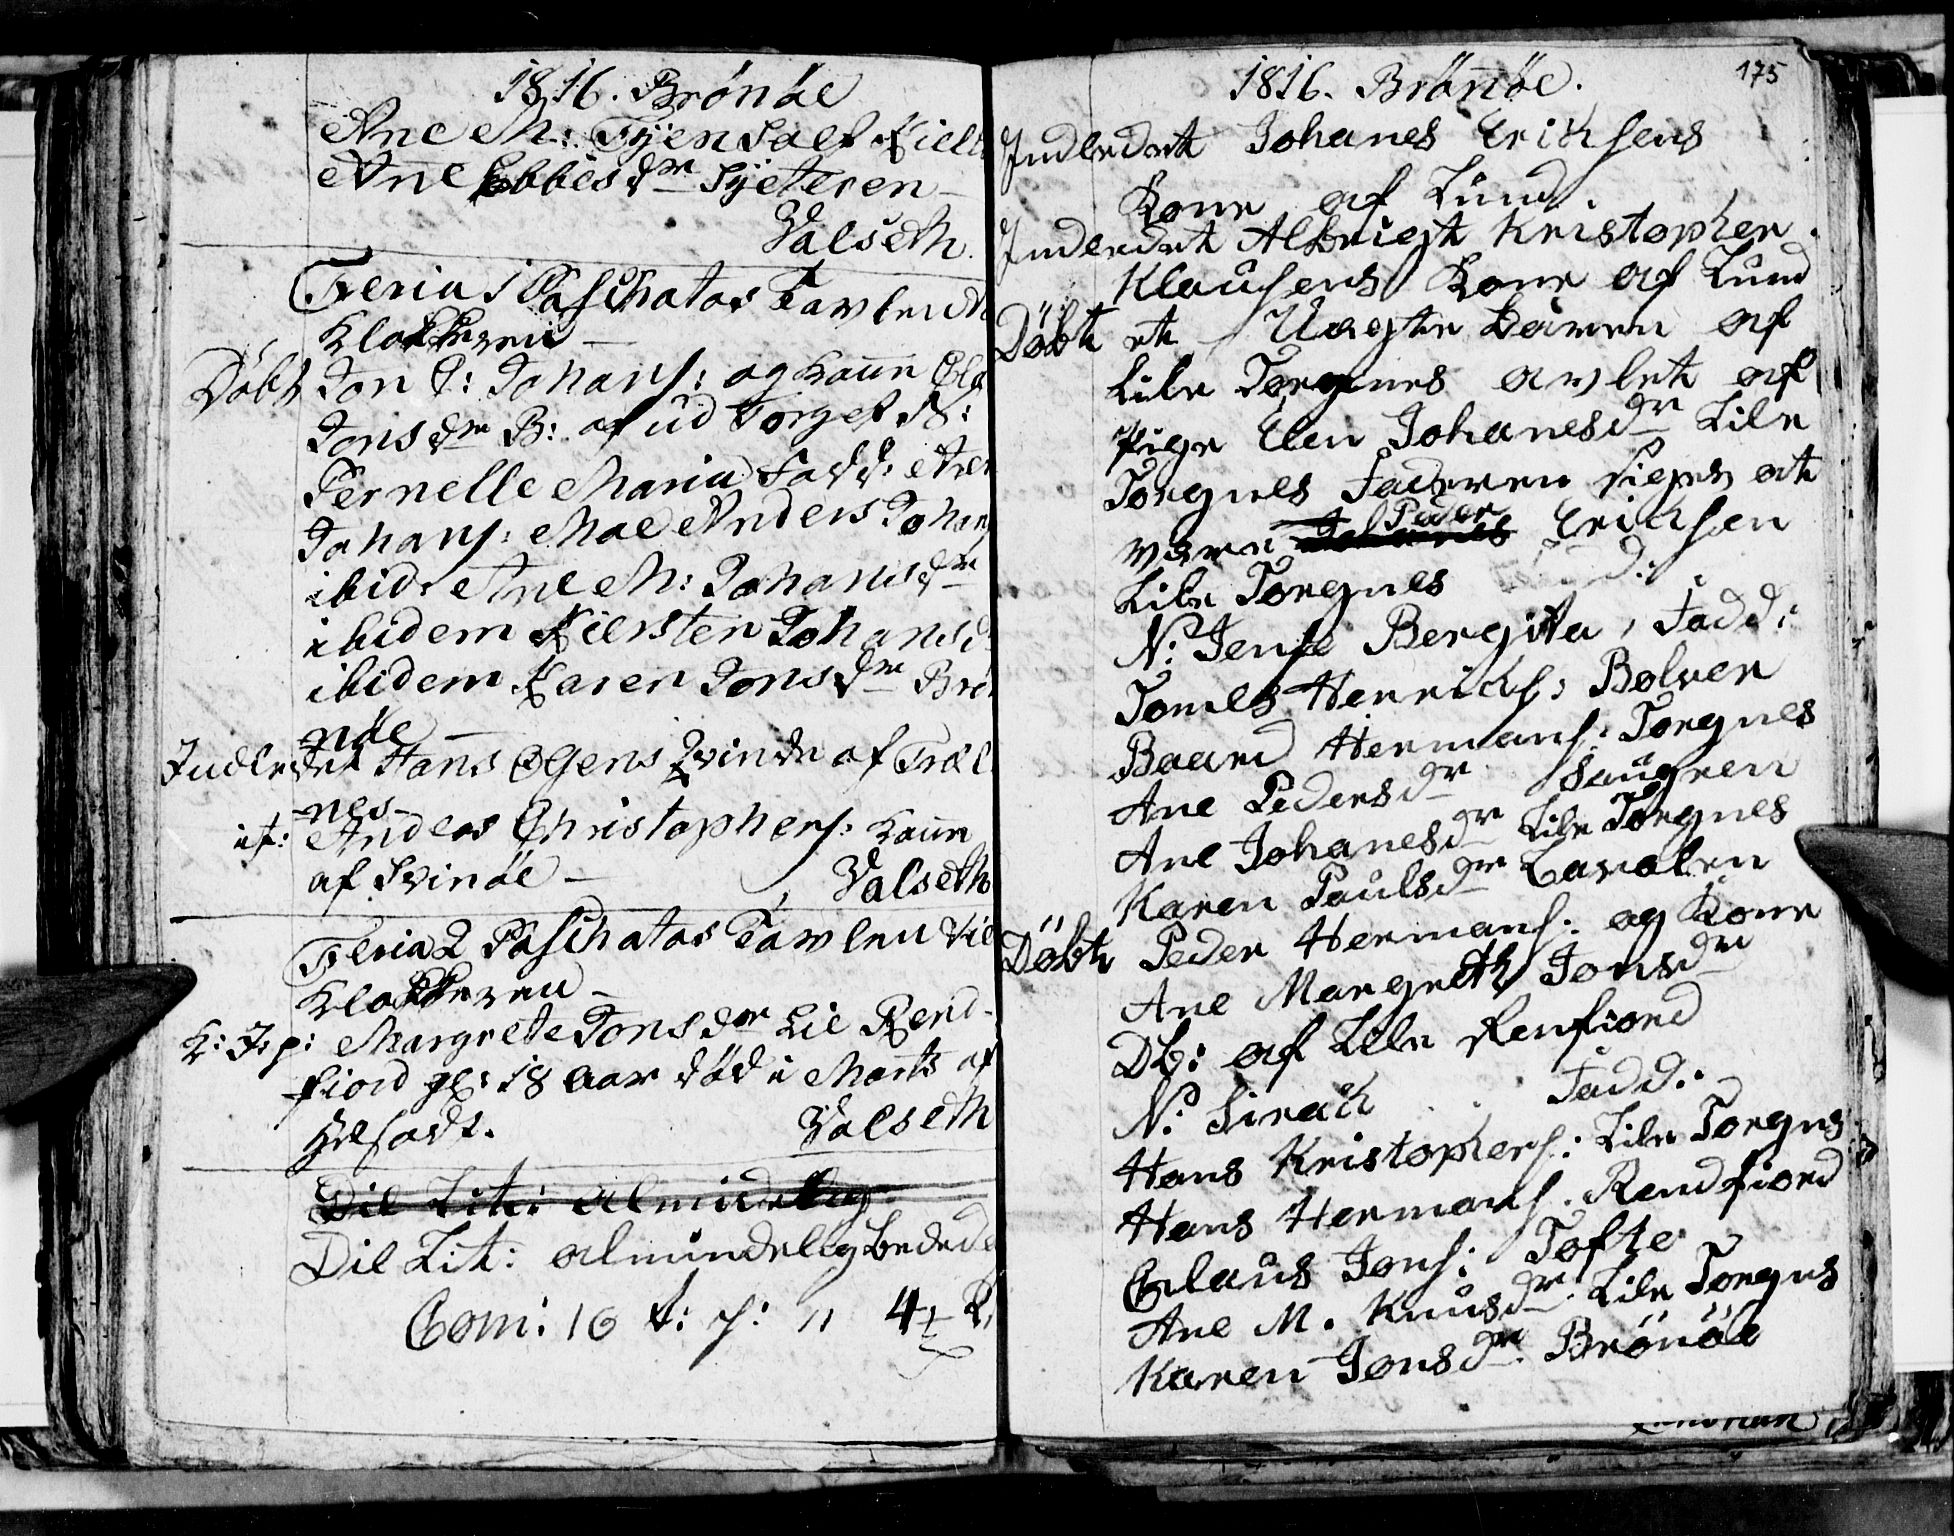 1816. Brönöe
Ane M: Tjensdatr Kield
Ane Ebbesdr Sÿeteren
Valseth.
Feria 1 Paschatos Tavlendt
Klokkeren
Döbt Jon P: Johans: og Kaane
Jonsdr B: af ud Torget N:
Pernelle Maria Fadd:
Johans: Moe Anders Johan
ibid: Ane M: Johansdr
ibidem Kiersten Johansd
ibidem Karen Jonsdr Brö
nöe
Indledet Hans Ogens Qvinde af Træl
nes
it: Anders Christophers: Kaane
af Svinöe
Valseth
Feria 2 Paschatos Tavlen
Klokkeren
K: J: p: Margrete Jonsdr Lil Rend-
fiord gl: 18 aar död i Marts af
Valseth
Dil Lit: almindelig
Dil Lit: almindelig bededa
Com: 16 t: s: 11 4 ƚ

1816. Brönöe. 175
Indledet Johanes Erichsens
Kone af Lund.
Indledet Albrigt Kristopher
Klausens Kone af Lund
Döbt et Uægte Barn af
Lile Torgnes avlet af
Pige Elen Johanesdr Lile
Torgnes Faderen siges at
være Johanes Peder Erichsen
Lile Torgnes
N: Jense Bergita, Fadd:
Tomes Henrichs: Bolver
Baard Hermans: Torgnes
Ane Pedersdr Saugren
Ane Johanesdr Lile Torgnes
Karen Paulsdr
Döbt Peder Hermans: og Kone
Ane Margreth Jonsdr
Db: af Lile Renfiord
N: Sirach Fadd:
Hans Kristophers: Lile Torgns
Hans Hermans. Rendfiord
Claus Jons: Tofte
Ane M. Knusdr. Lile Torgns
Karen Jonsdr. Brönöe